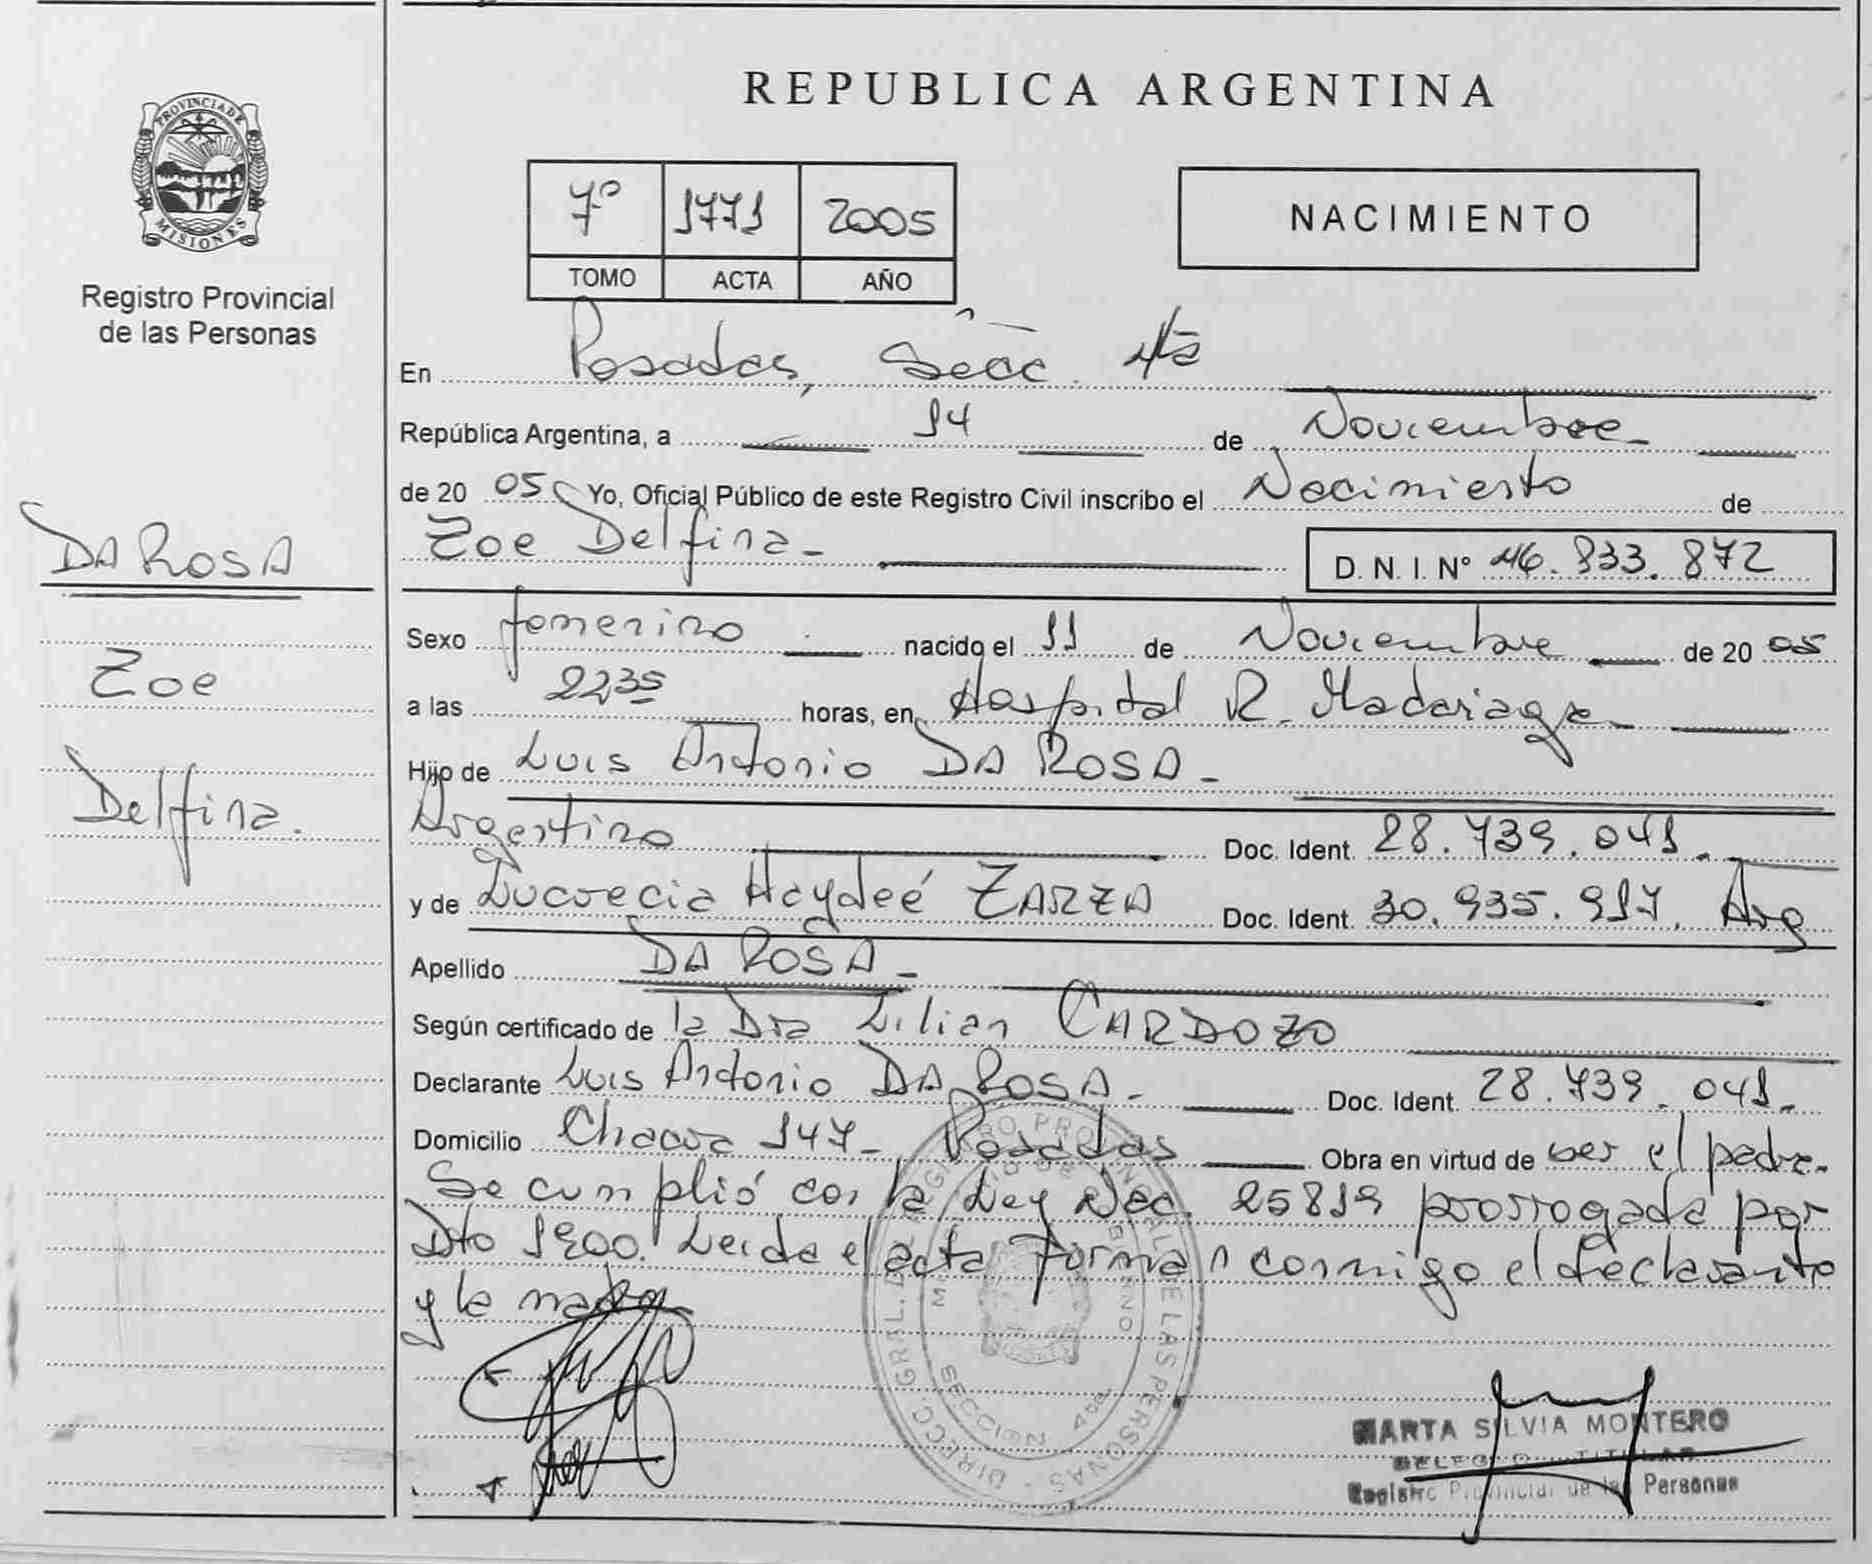 REPUBLICA ARGENTINA
PROVINCIA DE
MISIONES
Registro Provincial
de las Personas
7º 1771 2005
TOMO ACTA AÑO
NACIMIENTO
En Posadas, Secc. 4ta
República Argentina, a 14 de Noviembre
de 20 05 Yo, Oficial Público de este Registro Civil inscribo el Nacimiento de
Zoe Delfina D. N. I. Nº 46.833.872
DA ROSA
Zoe
Delfina.
Sexo femenino nacido el 11 de Noviembre de 20 05
a las 2235 horas, en Hospital R. Madariaga
Hijo de Luis Antonio DA ROSA
Argentino Doc. Ident. 28.739.041
y de Lucrecia Haydeé ZARZA Doc. Ident. 30.935.917. Arg
Apellido DA ROSA
Según certificado de la Dra Lilian CARDOZO
Declarante Luis Antonio DA ROSA Doc. Ident. 28.739.041
Domicilio 147 Posadas Obra en virtud de ser el padre
Se cumplió con la Ley Nac. 25819 prorrogada por
Dto 1900. Leida el acta firman conmigo el declarante
y la madre
DIRECC. GRAL. DEL REGISTRO PROVINCIAL DE LAS PERSONAS
SECCION 4ta
MARTA SILVIA MONTERO
TITULAR
Registro Provincial de las Personas